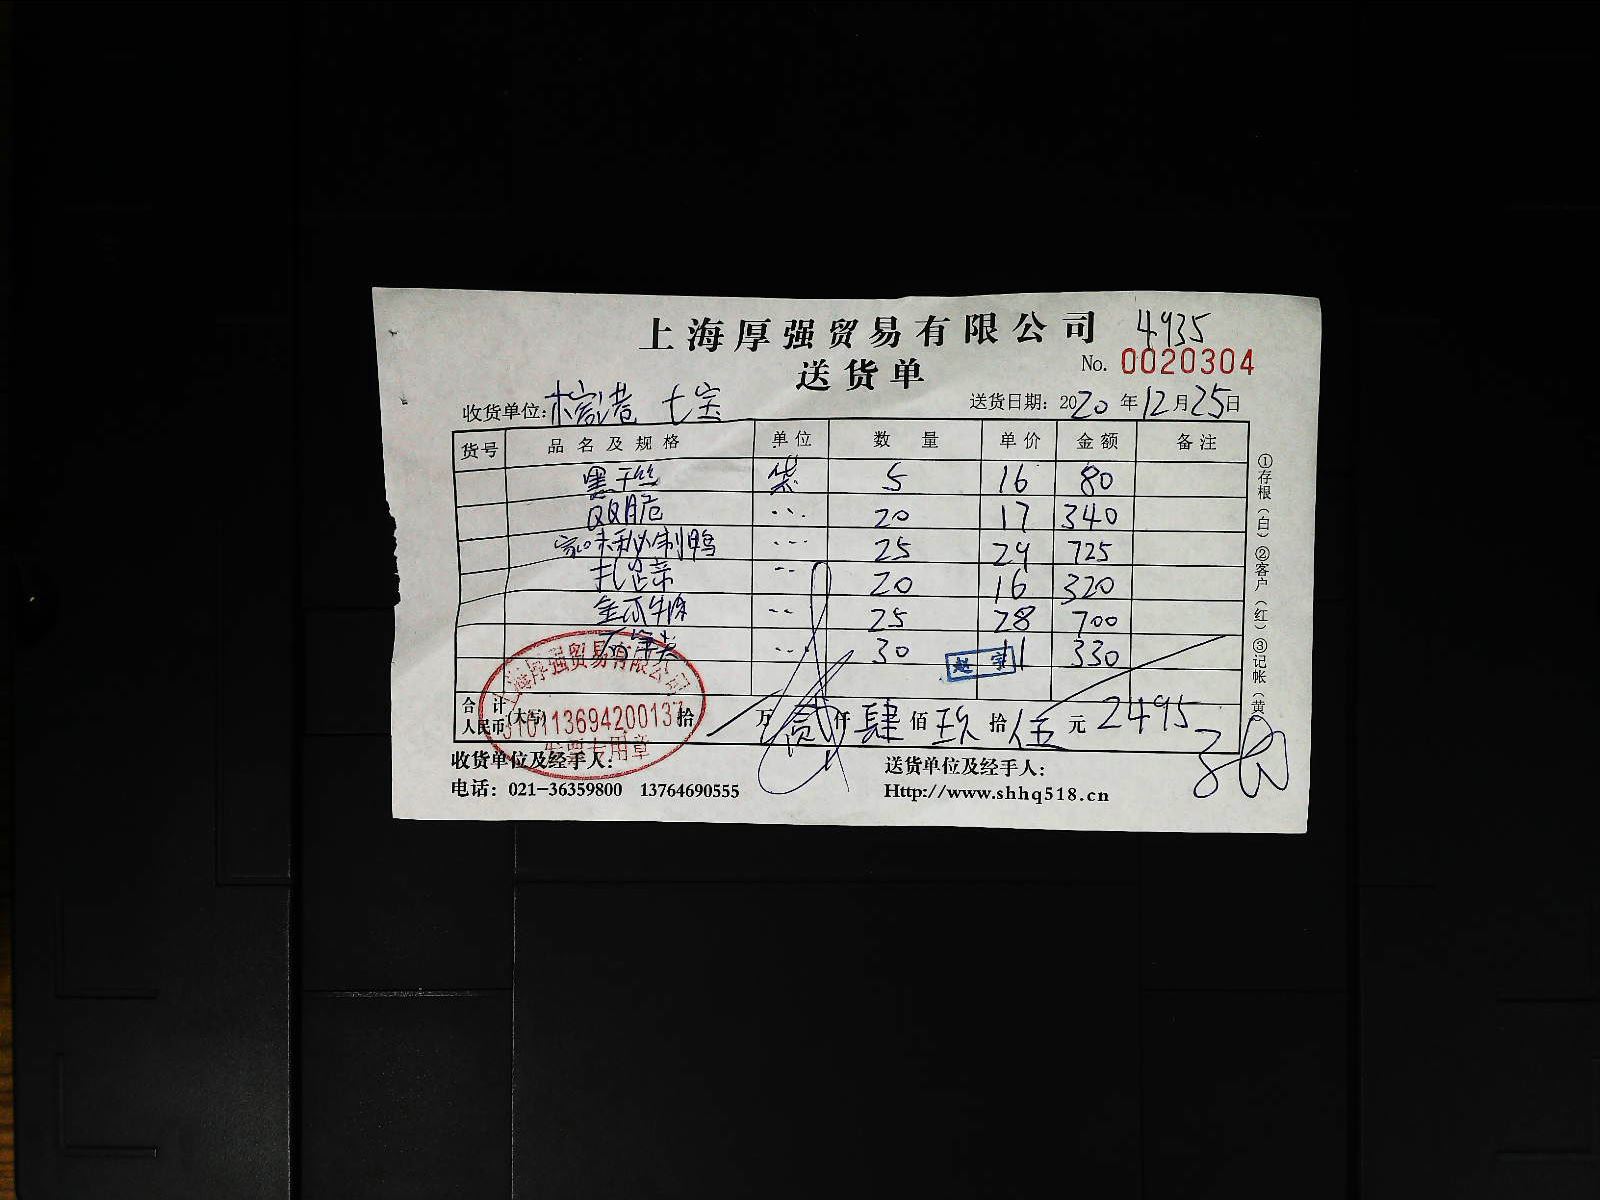 上海厚强贸易有限公司 4935
送货单 No. 0020304
收货单位: 七宝 送货日期: 2020年12月25日
货号 品名及规格 单位 数量 单价 金额 备注
黑干丝 袋 5 16 80
QQ脆 ... 20 17 340
家味秘制鸭 ... 25 29 725
扎蹄 20 16 320
25 28 700
30 11 330
赵宇
合计人民币(大写) 拾 万 贰仟肆佰玖拾伍元 2495
上海厚强贸易有限公司
310113694200137
发票专用章
收货单位及经手人: 送货单位及经手人:
电话: 021-36359800 13764690555 Http://www.shhq518.cn
①存根(白) ②客户(红) ③记帐(黄)